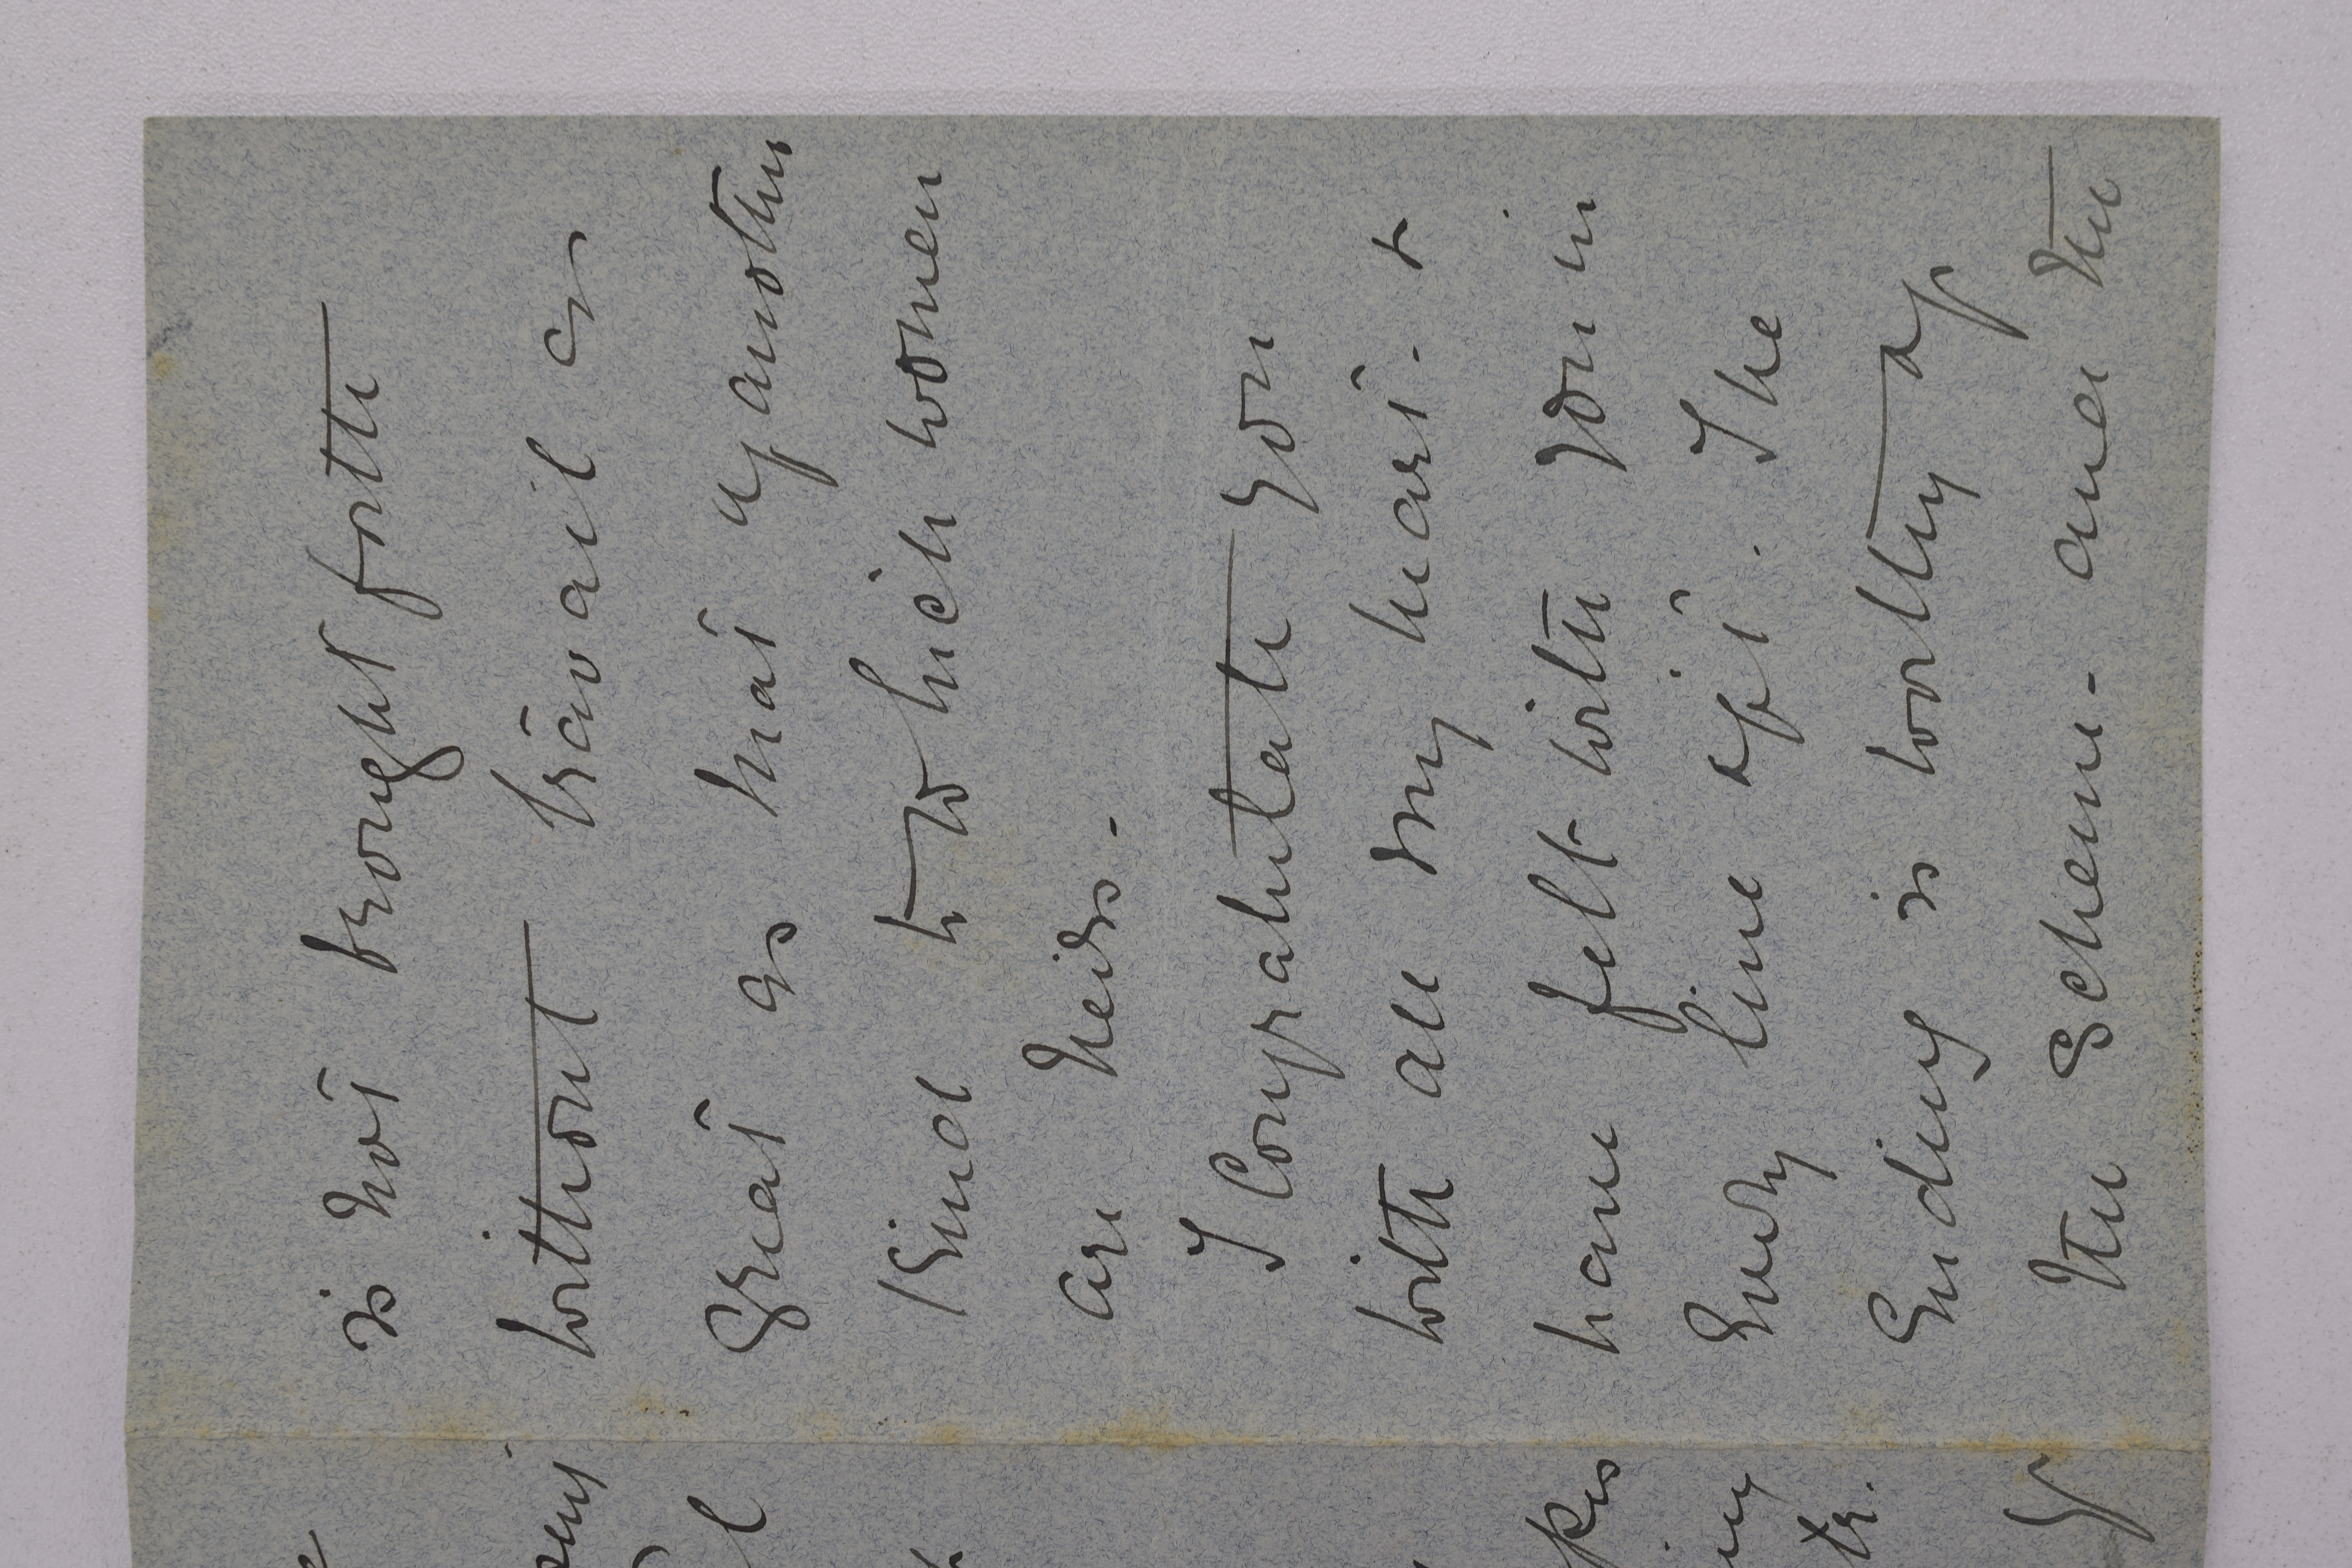 is not brought forth
without travail as
great as that of another
kind to which women
are heirs.-
I Congratulate you
with all my heart. &
have felt with you in
Every line of it. The
Ending is worthy of
the Scheme- and the